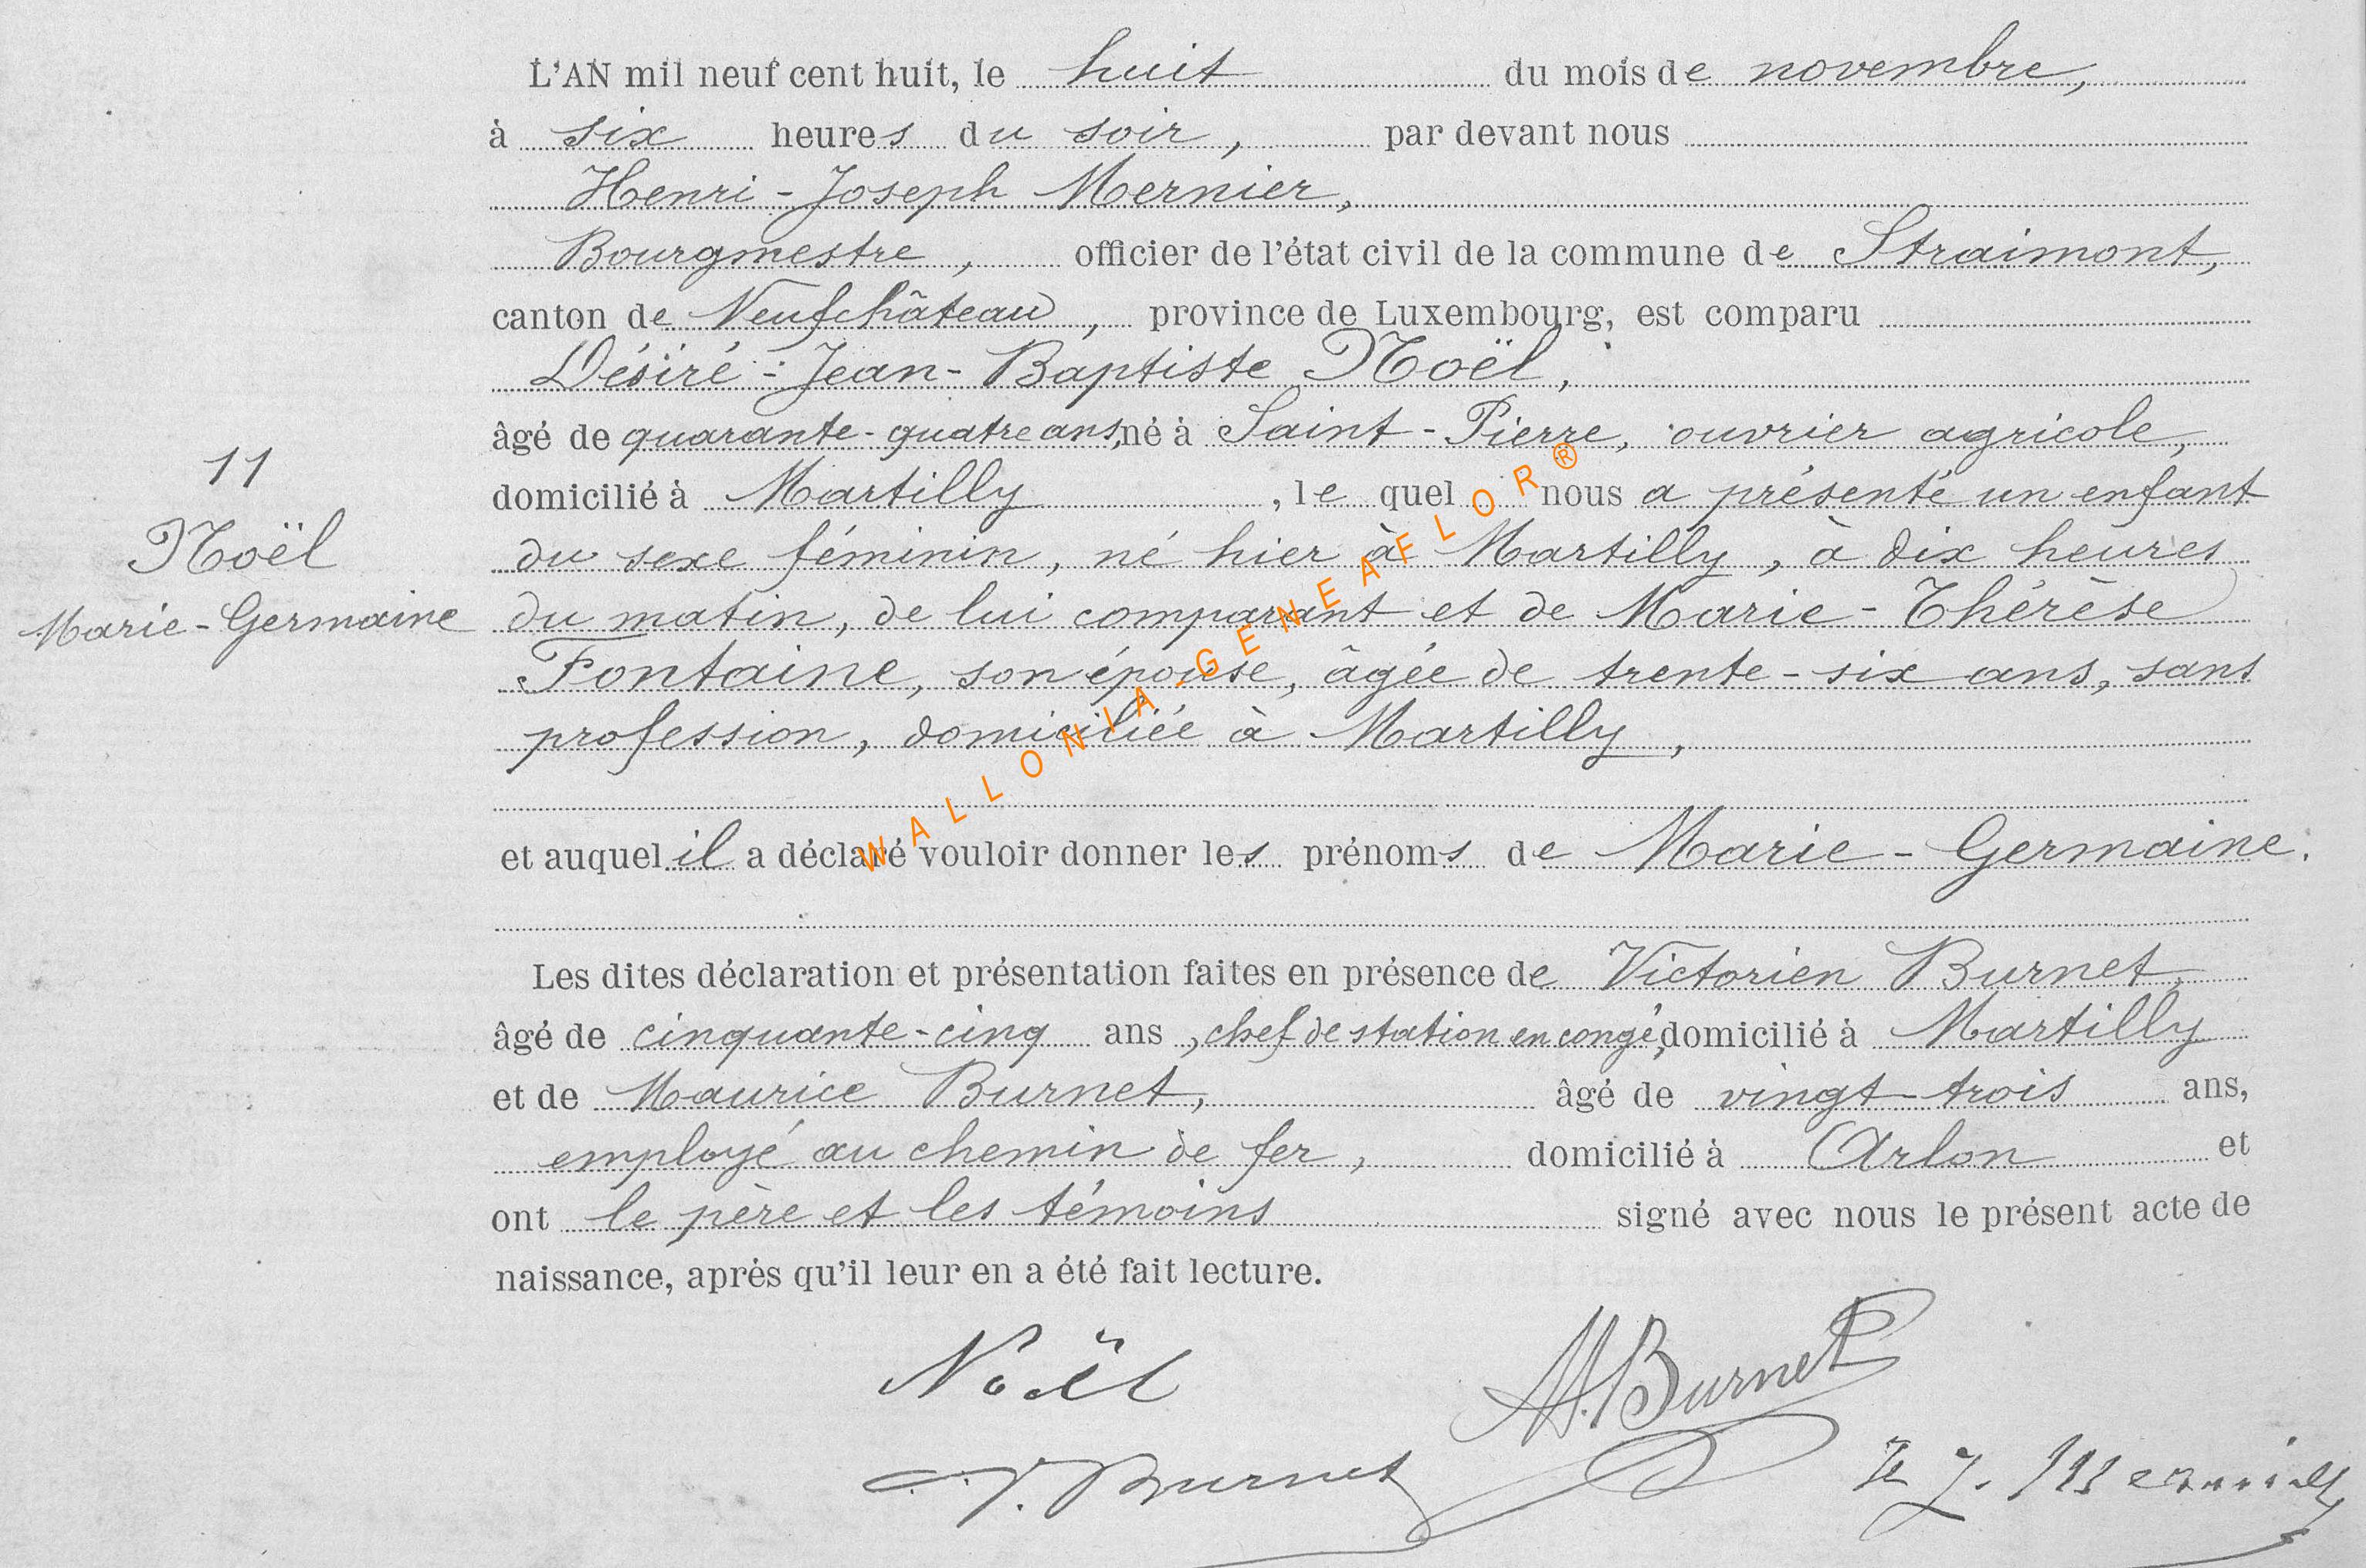 L'AN mil neuf cent huit, le huit du mois de novembre,
à six heures du soir, par devant nous
Henri-Joseph Mernier,
Bourgmestre, officier de l'état civil de la commune de Straimont,
canton de Neufchâteau, province de Luxembourg, est comparu
Désiré-Jean-Baptiste Noël,
âgé de quarante-quatre ans, né à Saint-Pierre, ouvrier agricole,
11
domicilié à Martilly, le quel nous a présenté un enfant
Noël
du sexe féminin, né hier à Martilly, à dix heures
Marie-Germaine
du matin, de lui comparant et de Marie-Thérèse
Fontaine, son épouse, âgée de trente-six ans, sans
profession, domiciliée à Martilly,
et auquel il a déclaré vouloir donner les prénoms de Marie-Germaine.
WALLONIA-GENEAFLOR®
Les dites déclaration et présentation faites en présence de Victorien Burnet,
âgé de cinquante-cinq ans, chef de station en congé, domicilié à Martilly
et de Maurice Burnet, âgé de vingt-trois ans,
employé au chemin de fer, domicilié à Arlon et
ont le père et les témoins signé avec nous le présent acte de
naissance, après qu'il leur en a été fait lecture.
Noël
M. Burnet
V. Burnet